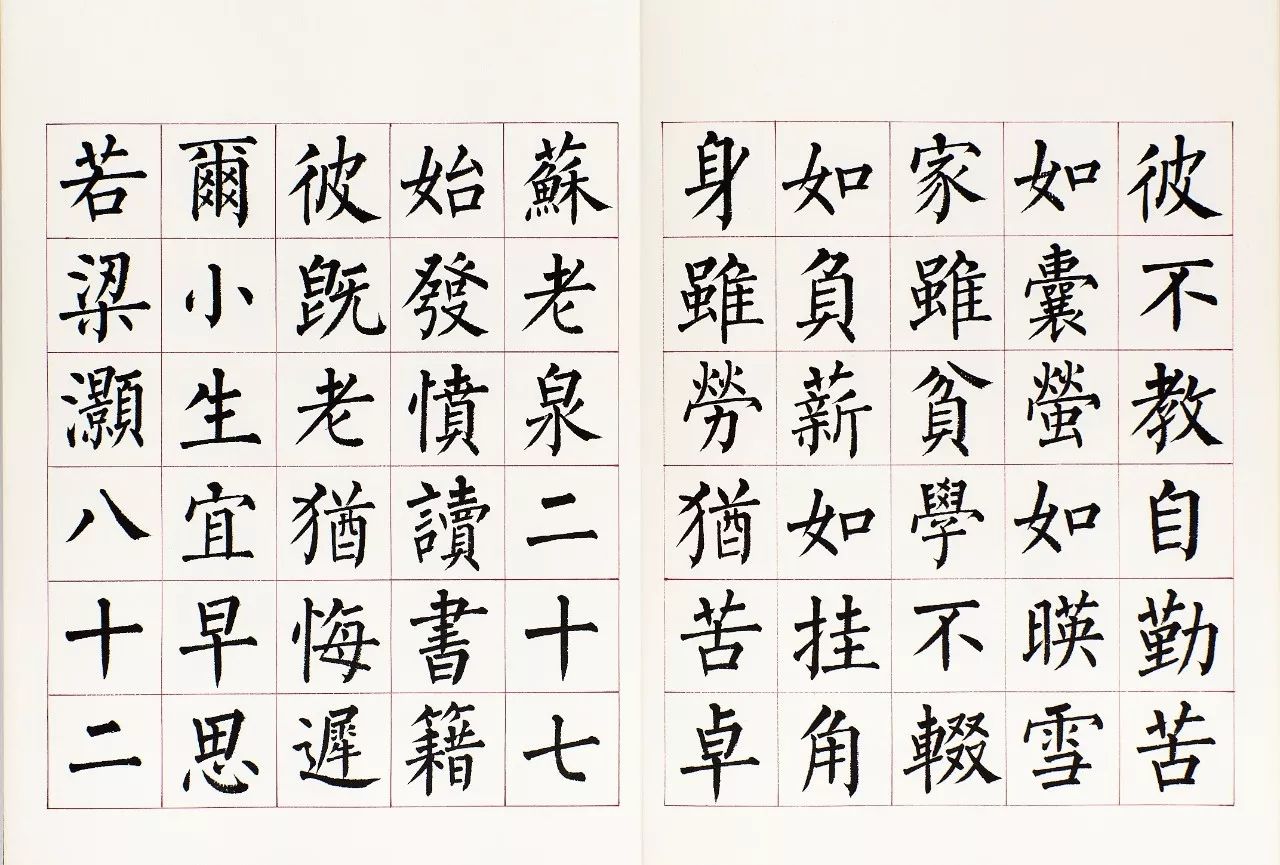 彼不教自勤苦
如囊螢如暎雪
家雖貧學不輟
如負薪如挂角
身雖勞猶苦卓
蘇老泉二十七
始發憤讀書籍
彼既老猶悔遲
爾小生宜早思
若梁灝八十二